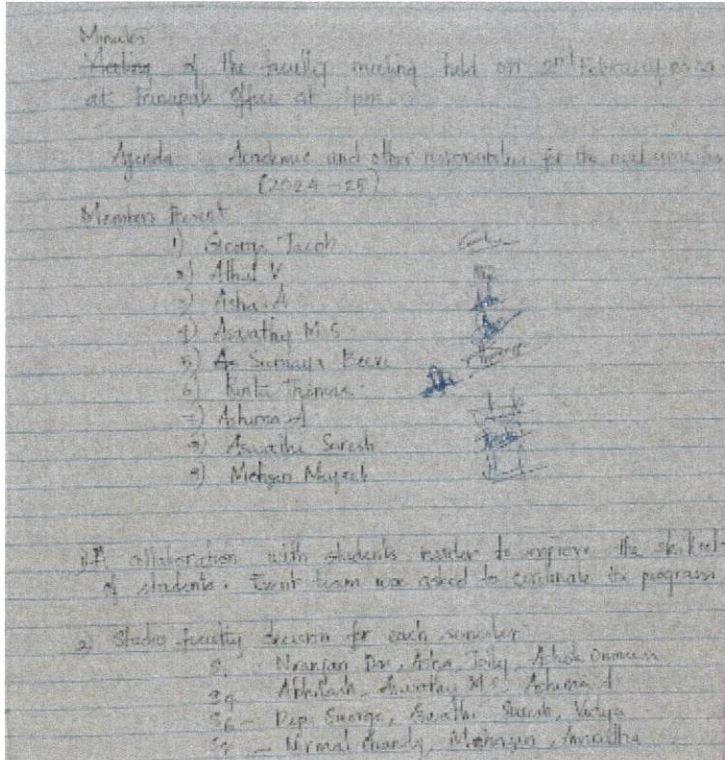 Minutes
Meeting of the faculty meeting held on 2nd February
at Principals Office at 1pm
Agenda : Academic and other responsibilities for the next
(2024-25)
Members Present
1) George Jacob
2) Athul V
3) Asha A
4) Aswathy M S
5) Sumayya Beevi
6) Thomas
7) Ashima A
8) Aswathi Suresh
9)
1) A collaboration with students inorder to improve the skillset
of students. Event team was asked to cordinate the program
2) Studio faculty decision for each semester
Asha, Ashok
S4 Abhilash, Aswathy M S, Ashima A
S6 - George, Swathi Vidya
S8 - Nirmal Chandy,